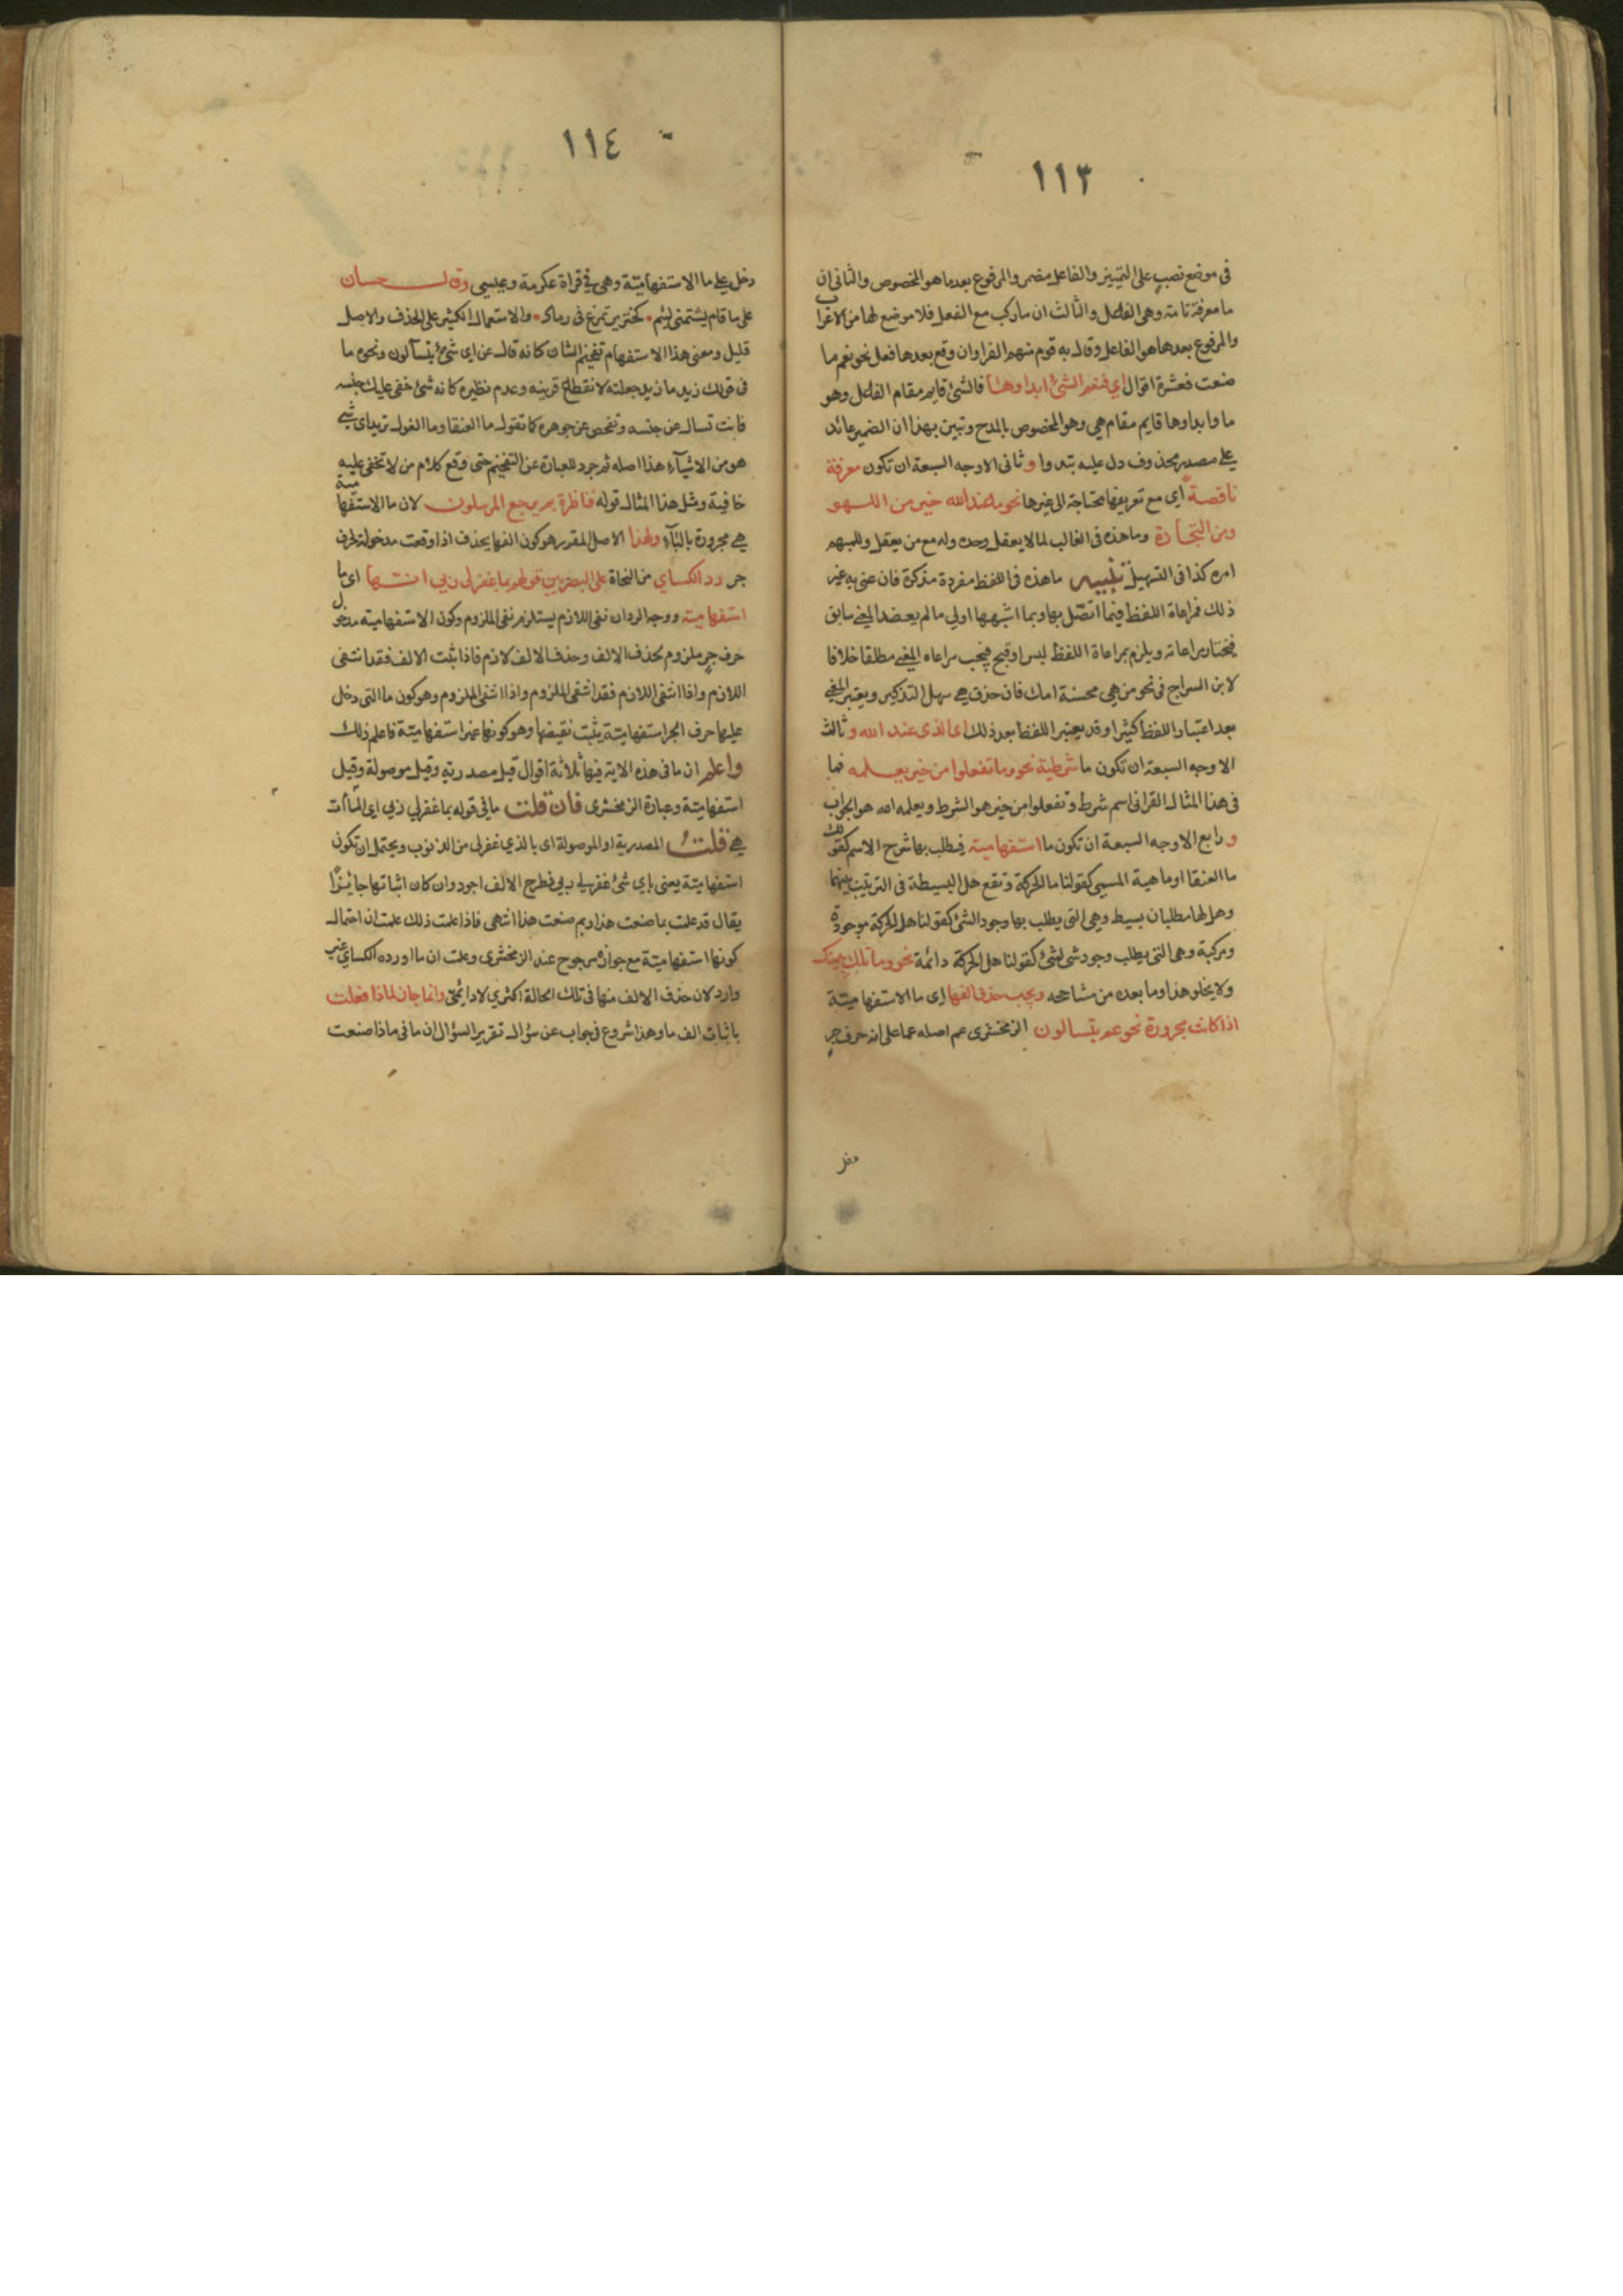 ١١٣
فى موضع نصب على التمييز والفاعل مضمر والمرفوع بعدما هو المخصوص والثانى ان
ما معرفة تامة وهى الفاعل والثالث ان ما ركب مع الفعل فلا موضع لها من الاعراب
والمرفوع بعدها هو الفاعل وقال به قوم منهم الفرا وان وقع بعدها فعل نحو نعم ما
صنعت فعشرة اقوال اي فنعم الشئ ابداوها فالشئ قايم مقام الفاعل وهو
ما وابداوها قايم مقام هي وهو المخصوص بالمدح وتبين بهذا ان الضمير عائد
على مصدر محذوف دل عليه تبدوا وثانى الاوجه السبعة ان تكون معرفة
ناقصة اي مع تعريفها محتاجة الى غيرها نحو ما عند الله خير من اللهو
ومن التجارة وما هذه فى الغالب لما لا يعقل وحده وله مع من يعقل وللمبهم
امره كذا فى التسهيل تنبيه ما هذه فى اللفظ مفردة مذكرة فان عنى به غير
ذلك فمراعاة اللفظ فيما اتصل بها وبما اشبهها اولي ما لم يعضد المعنى سابق
فيختار مراعاته ويلزم بمراعاة اللفظ لبس او قبح فيجب مراعاه المعنى مطلقا خلافا
لابن السراج فى نحو من هي محسنة امك فان حذف هى سهل التذكير ويعتبر المعنى
بعد اعتبار اللفظ كثيرا وقد يعتبر اللفظ بعد ذلك اى الذى عند الله وثالث
الاوجه السبعة ان تكون ما شرطية نحو وما تفعلوا من خير يعلمه فما
فى هذا المثال القرانى اسم شرط وتفعلوا من خير هو الشرط ويعلمه الله هو الجواب
و رابع الاوجه السبعة ان تكون ما استفهامية فيطلب بها شرح الاسم كقولك
ما العنقا او ماهية المسمى كقولنا ما الحركة وتقع هل البسيطة فى الترتيب بينهما
وهل لها مطلبان بسيط وهي التى يطلب بها وجود الشئ كقولنا هل الحركة موجودة
ومركبة وهى التى يطلب وجود شى لشئ كقولنا هل الحركة دائمة نحو وما تلك بيمينك
ولا يخلو هذا وما بعده من مشاححه ويجب حذف الفها اي ما الاستفهامية
اذا كانت مجرورة نحو عم يتسالون الزمخشرى عم اصله عما على انه حرف جر
دخل
١١٤
دخل على ما الاستفهامية وهى فى قراة عكرمة وعيسى وقال حسان
على ما قام يشتمنى ليئم كخنزير تمرغ فى رماد والاستعمال الكثير على الحذف والاصل
قليل ومعنى هذا الاستفهام تفخيم الشان كانه قال عن اى شئ يتسآلون ونحوه ما
فى قولك زيد ما زيد جعلته لانقطاع قرينه وعدم نظيره كانه شئ خفى عليك جنسه
فانت تسال عن جنسه وتفحص عن جوهره كما تقول ما العنقا وما الغول تريد اى شى
هو من الاشيآء هذا اصله ثم جرد للعبارة عن التفخيم حتى وقع كلام من لا تخفى عليه
خافية ومثل هذا المثال قوله فناظرة بم يرجع المرسلون لان ما الاستفهامية
هي مجرورة بالبآء ولهذا الاصل المقرر هو كون الفها يحذف اذا وقعت مدخولة لحرف
جر رد الكساي من النحاة على البصريين قولهم بما غفر لى ربي انتهى اى ما
استفهامية ووجه الرد ان نفى اللازم يستلزم نفى الملزوم وكون الاستفهامية مدخول
حرف جر ملزوم لحذف الالف وحذف الالف لازم فاذا ثبت الالف فقد انتفى
اللازم واذا انتفى اللازم فقد انتفى الملزوم واذا انتفى الملزوم وهو كون ما التى دخل
عليها حرف الجر استفهامية يثبت نقيضها وهو كونها غير استفهامية فاعلم ذلك
واعلم ان ما فى هذه الاية فيها ثلاثة اقوال قيل مصدرية وقيل موصولة وقيل
استفهامية وعبارة الزمخشرى فان قلت ما في قوله بما غفر لي ربي اى الماآت
هي قلت المصدرية او الموصولة اى بالذي غفر لى من الذنوب ويحتمل ان تكون
استفهامية يعنى باي شئ غفر لي ربي فطرح الالف اجود وان كان اثباتها جائزا
يقال قد علمت بما صنعت هذا وبم صنعت هذا انتهى فاذا علمت ذلك علمت ان احتمال
كونها استفهامية مع جوازه مرجوح عند الزمخشرى وعلمت ان ما اورده الكساي غير
وارد لان حذف الالف منها فى تلك الحالة اكثري لا دائمى وانما جاز لماذا فعلت
باثبات الف ما وهذا شروع فى جواب عن سؤال تقرير السؤال ان ما فى ماذا صنعت